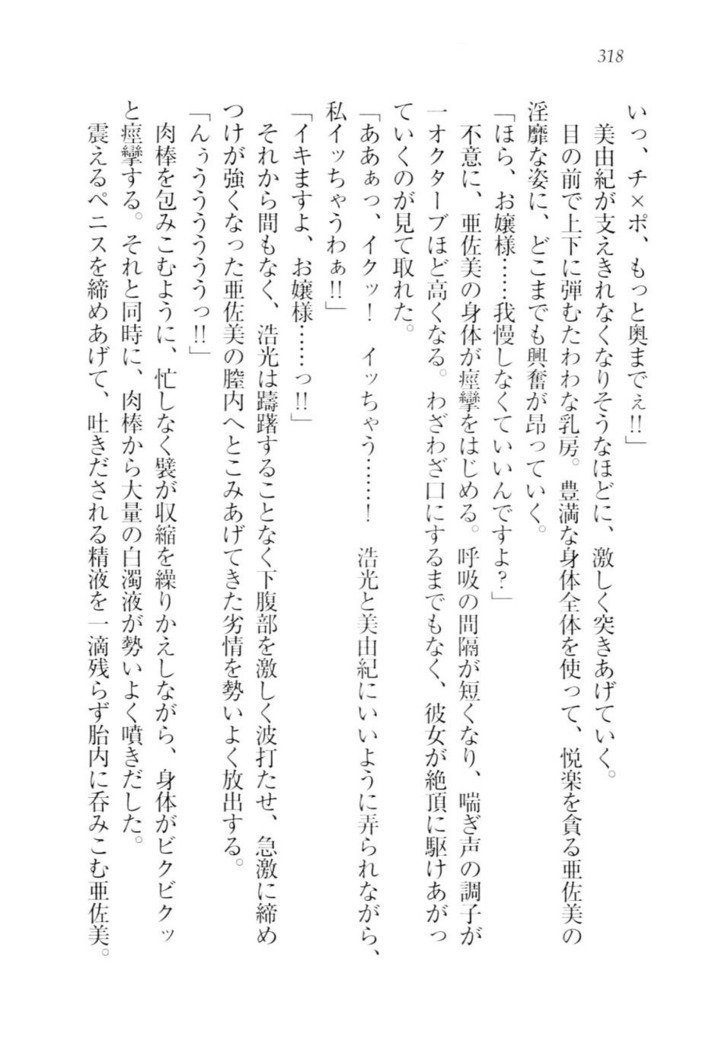 318
いっ、チ×ポ、もっと奥までぇ!!」
　美由紀が支えきれなくなりそうなほどに、激しく突きあげていく。
　目の前で上下に弾むたわわな乳房。豊満な身体全体を使って、悦楽を貪る亜佐美の
淫靡な姿に、どこまでも興奮が昂っていく。
「ほら、お嬢様……我慢しなくていいんですよ？」
　不意に、亜佐美の身体が痙攣をはじめる。呼吸の間隔が短くなり、喘ぎ声の調子が
一オクターブほど高くなる。わざわざ口にするまでもなく、彼女が絶頂に駆けあがっ
ていくのが見て取れた。
「ああぁっ、イクッ！　イッちゃう……！　浩光と美由紀にいいように弄られながら、
私イッちゃうわぁ!!」
「イキますよ、お嬢様……っ!!」
　それから間もなく、浩光は躊躇することなく下腹部を激しく波打たせ、急激に締め
つけが強くなった亜佐美の膣内へとこみあげてきた劣情を勢いよく放出する。
「んぅううううううっ!!」
　肉棒を包みこむように、忙しなく襞が収縮を繰りかえしながら、身体がビクビクッ
と痙攣する。それと同時に、肉棒から大量の白濁液が勢いよく噴きだした。
　震えるペニスを締めあげて、吐きだされる精液を一滴残らず胎内に呑みこむ亜佐美。